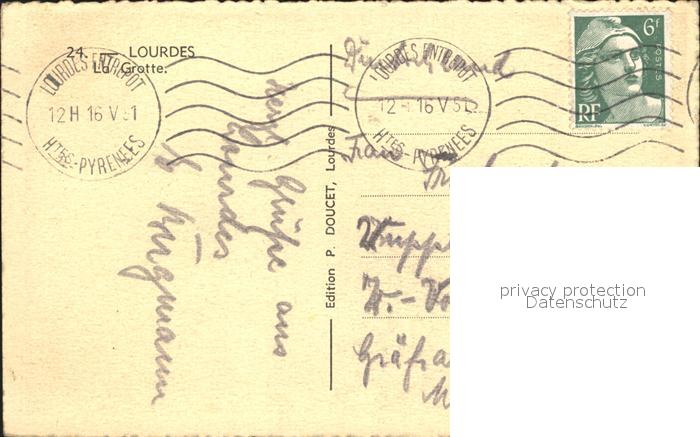 24. LOURDES
La Grotte.
LOURDES ENTREPOT
12H 16 V 51
HTES-PYRENEES
LOURDES ENTREPOT
12 H 16 V 51
HTES-PYRENEES
6F
POSTES
RF
Edition P. DOUCET, Lourdes
Grüße aus
Lourdes
Deutschland
Frau
Wuppe
W.-Vo
Gräfra
privacy protection
Datenschutz